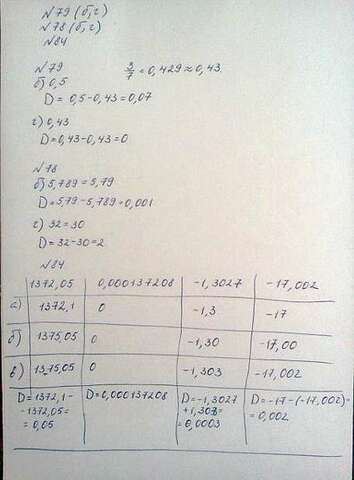 №79 (б,г)
№78 (б,г)
№84
№79 3/7 = 0,429 ≈ 0,43
б) 0,5
D = 0,5-0,43=0,07
г) 0,43
D=0,43-0,43=0
№78
б) 5,789 = 5,79
D=5,79-5,789=0,001
г) 32=30
D=32-30=2
№84
1372,05 0,000137208 -1,3027 -17,002
а) 1372,1 0 -1,3 -17
б) 1375,05 0 -1,30 -17,00
в) 1375,05 0 -1,303 -17,002
D=1372,1- D=0,000137208 D=-1,3027 D=-17-(-17,002)=
-1372,05= +1,303= =0,002
=0,05 =0,0003